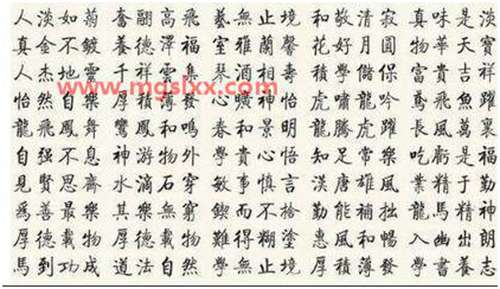 人淡如菊 奮翮高飛 藝無止境 和敬清寂 真味是淡
真金不鍍 養德澤福 室雅蘭馨 花好月圓 物華天寶
人杰地靈 千祥雲集 琴酒相壽 富貴吉祥
怡然自樂 厚積薄發 心曠神怡 虎嘯龍吟 鳶飛魚躍
龍飛鳳舞 鸞鳳和鳴 春和景明 龍騰虎躍 長風萬裏
自强不息 神游物外 學貴心悟 知足常樂 吃虧是福
見賢思齋 水滴石穿 敏事慎言 漢唐雄風 業精于勤
爲善最樂 其樂無窮 鍥而不捨 勤能補拙 龍馬精神
厚德載物 厚德載物 難得糊塗 惠風和暢 入幽出朗
馬到功成 道法自然 學無止境 厚積薄發 學書養志
www.mgslxx.com